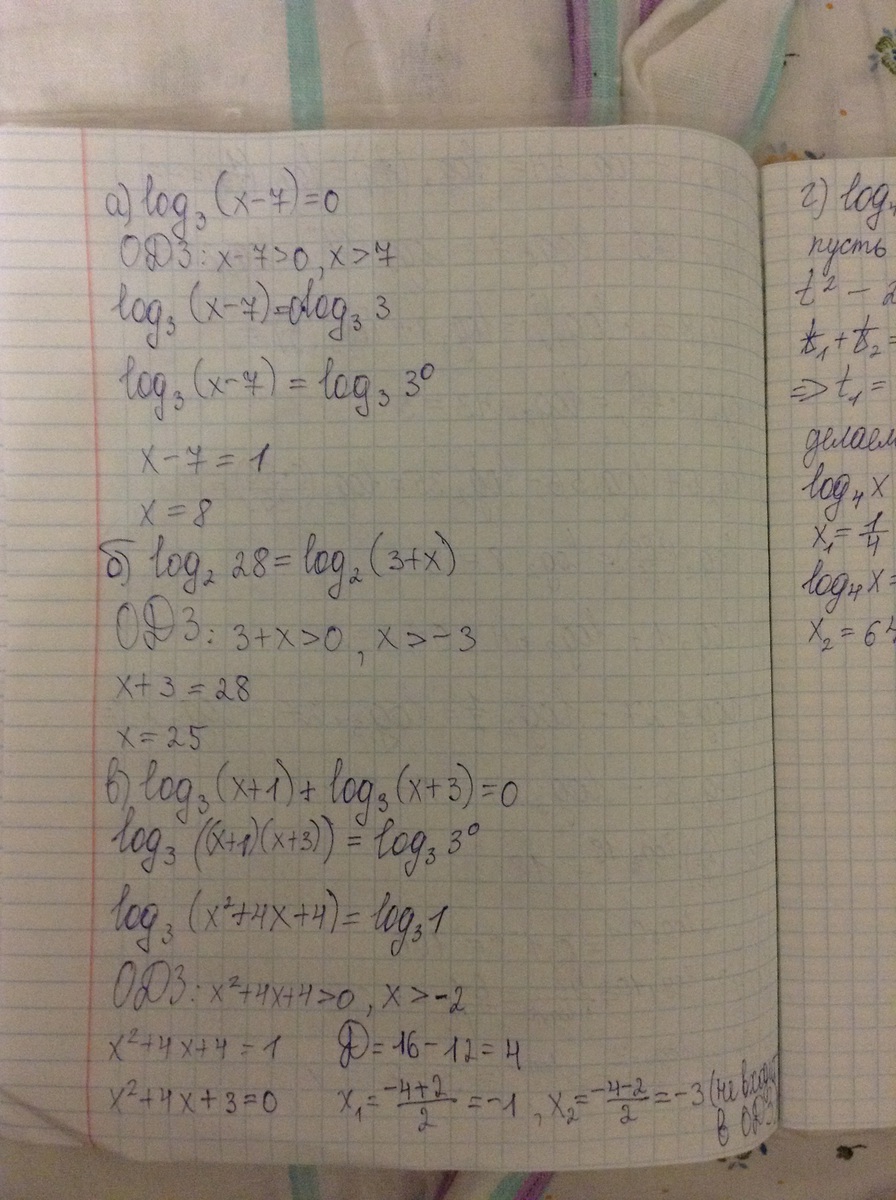 а) log₃(x-7)=0
ОДЗ: x-7>0, x>7
log₃(x-7)=0log₃3
log₃(x-7) = log₃3⁰
x-7 = 1
x = 8
б) log₂ 28 = log₂(3+x)
ОДЗ: 3+x>0, x>-3
x+3 = 28
x = 25
в) log₃(x+1) + log₃(x+3) = 0
log₃((x+1)(x+3)) = log₃3⁰
log₃(x²+4x+4) = log₃1
ОДЗ: x²+4x+4>0, x>-2
x²+4x+4 = 1 D = 16-12 = 4
x²+4x+3=0 x₁ = (-4+2)/2 = -1, x₂ = (-4-2)/2 = -3 (не входит
в ОДЗ
г) log₄
пусть
t² - 2
t₁+t₂=
=> t₁ =
делаем
log₄x
x₁ = 1/4
log₄x =
x₂ = 64